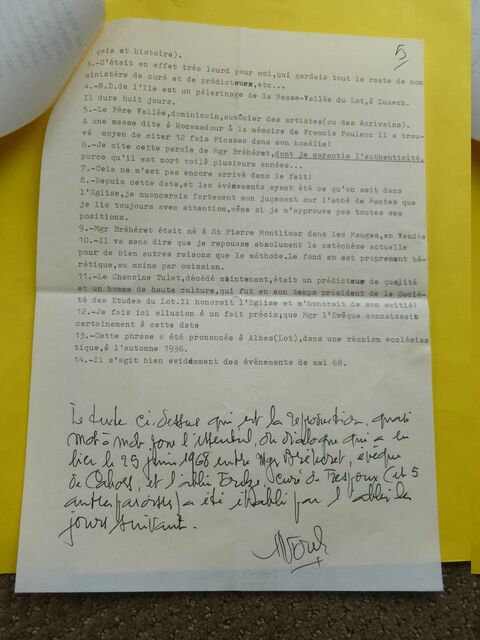 5
çais et histoire).
3.-C'était en effet très lourd pour moi,qui gardais tout le reste de mon
ministère de curé et de prédicteur,etc...
4.-N.D.de l'Ile est un pèlerinage de la Basse-Vallée du Lot,à Luzech.
Il dure huit jours.
5.-Le Père Vallée,dominicain,aumônier des artistes(ou des écrivains).
A une messe dite à Rocamadour à la mémoire de Francis Poulenc il a trou-
vé moyen de citer 12 fois Picasso dans son homélie!
6.-Je cite cette parole de Mgr Bréhéret,dont je garantis l'authenticité,
parce qu'il est mort voilà plusieurs années...
7.-Cela ne m'est pas encore arrivé dans le fait!
8.-Depuis cette date,et les événements ayant été ce qu'on sait dans
l'Eglise,je nuancerais fortement mon jugement sur l'abbé de Nantes que
je lis toujours avec attention,même si je n'approuve pas toutes ses
positions.
9.-Mgr Bréhéret était né à St Pierre Montlimar dans les Mauges,en Vendée
10.-Il va sans dire que je repousse absolument la catéchèse actuelle
pour de bien autres raisons que la méthode.Le fond en est proprement hé-
rétique,au moins par omission.
11.-Le Chanoine Tulet,décédé maintenant,était un prédicteur de qualité
et un homme de haute culture,qui fut en son temps président de la Socié-
té des Etudes du Lot.Il honorait l'Eglise et m'honorait de son amitié!
12.-Je fais ici allusion à un fait précis,que Mgr l'Evêque connaissait
certainement à cette date
13.-Cette phrase a été prononcée à Albas(Lot),dans une réunion ecclésias
tique,à l'automne 1956.
14.-Il s'agit bien evidemment des événements de mai 68.
Le texte ci-dessus qui est la reproduction, quasi
mot à mot pour l'essentiel, du dialogue qui a eu
lieu le 25 juin 1968 entre Mgr Bréhéret, évêque
de Cahors, et l'abbé curé de Trespoux (et 5
autres paroisses) a été établi par l'abbé les
jours suivant.